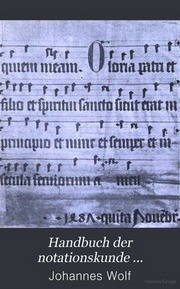 quiem meam. Gloria patri et
filio et spiritui sancto sicut erat in
principio et nunc et semper et in
secula seculorum amen
quita
Handbuch der
notationskunde ...
Johannes Wolf